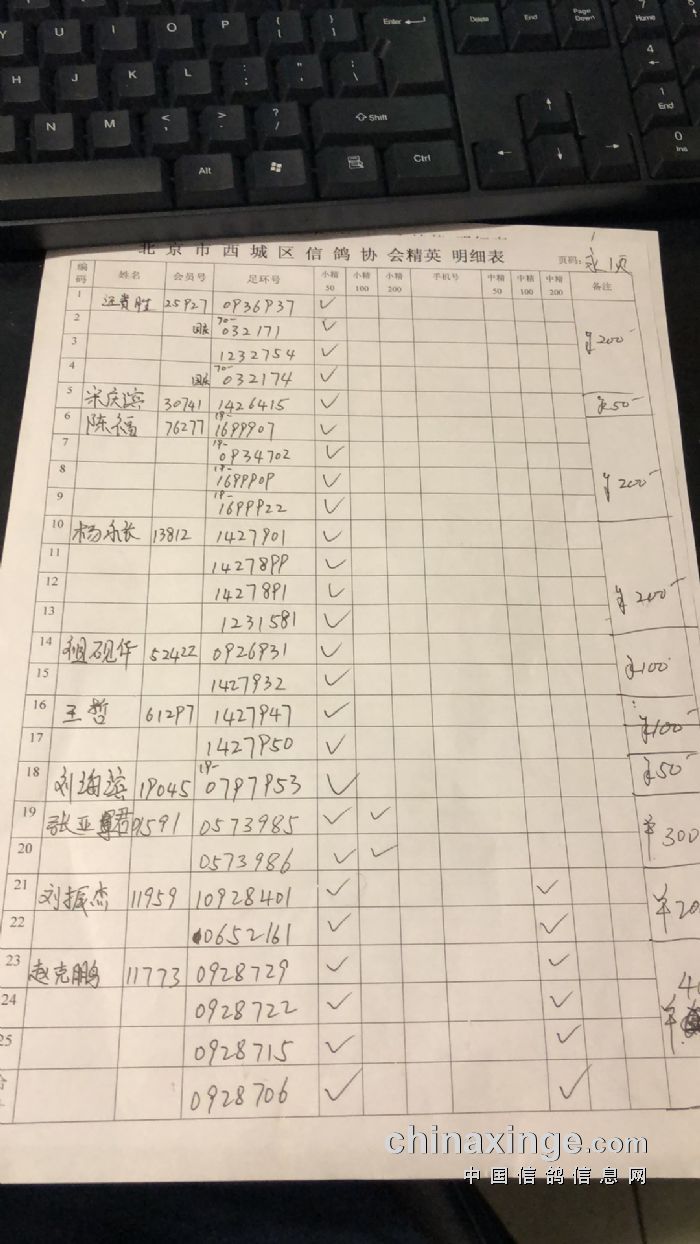 Y U I O P { [ } ] Enter Delete End Page Down 7 Home 8
H J K L : ; " ' | \ 4 ←
N M < , > . ? / Shift ↑ 1 End
Alt Ctrl ← ↓ → 0 Ins
北京市西城区信鸽协会精英 明细表 页码:
编码 姓名 会员号 足环号 小精50 小精100 小精200 手机号 中精50 中精100 中精200 备注
1 25927 0936937 ✓
2 国家 70- 032171 ✓ ¥200-
3 1232754 ✓
4 国家 70- 032174 ✓
5 宋庆滨 30741 1426415 ✓ ¥50-
6 陈福 76277 19- 1699907 ✓
7 19- 0934702 ✓
8 19- 1699909 ✓ ¥200-
9 19- 1699922 ✓
10 杨永长 13812 1427901 ✓
11 1427899 ✓
12 1427891 ✓ ¥200-
13 1231581 ✓
14 祖砚华 52422 0926931 ✓ ¥100-
15 1427932 ✓
16 王哲 61297 1427947 ✓ ¥100-
17 1427950 ✓
18 刘海滨 19045 19- 0797953 ✓ ¥50-
19 张亚君 01591 0573985 ✓ ✓ ¥300
20 0573986 ✓ ✓
21 刘振杰 11959 10928401 ✓ ✓ ¥20
22 0652161 ✓ ✓
23 赵克鹏 11773 0928729 ✓ ✓
24 0928722 ✓ ✓ ¥
25 0928715 ✓ ✓
0928706 ✓ ✓
chinaxinge.com
中国信鸽信息网